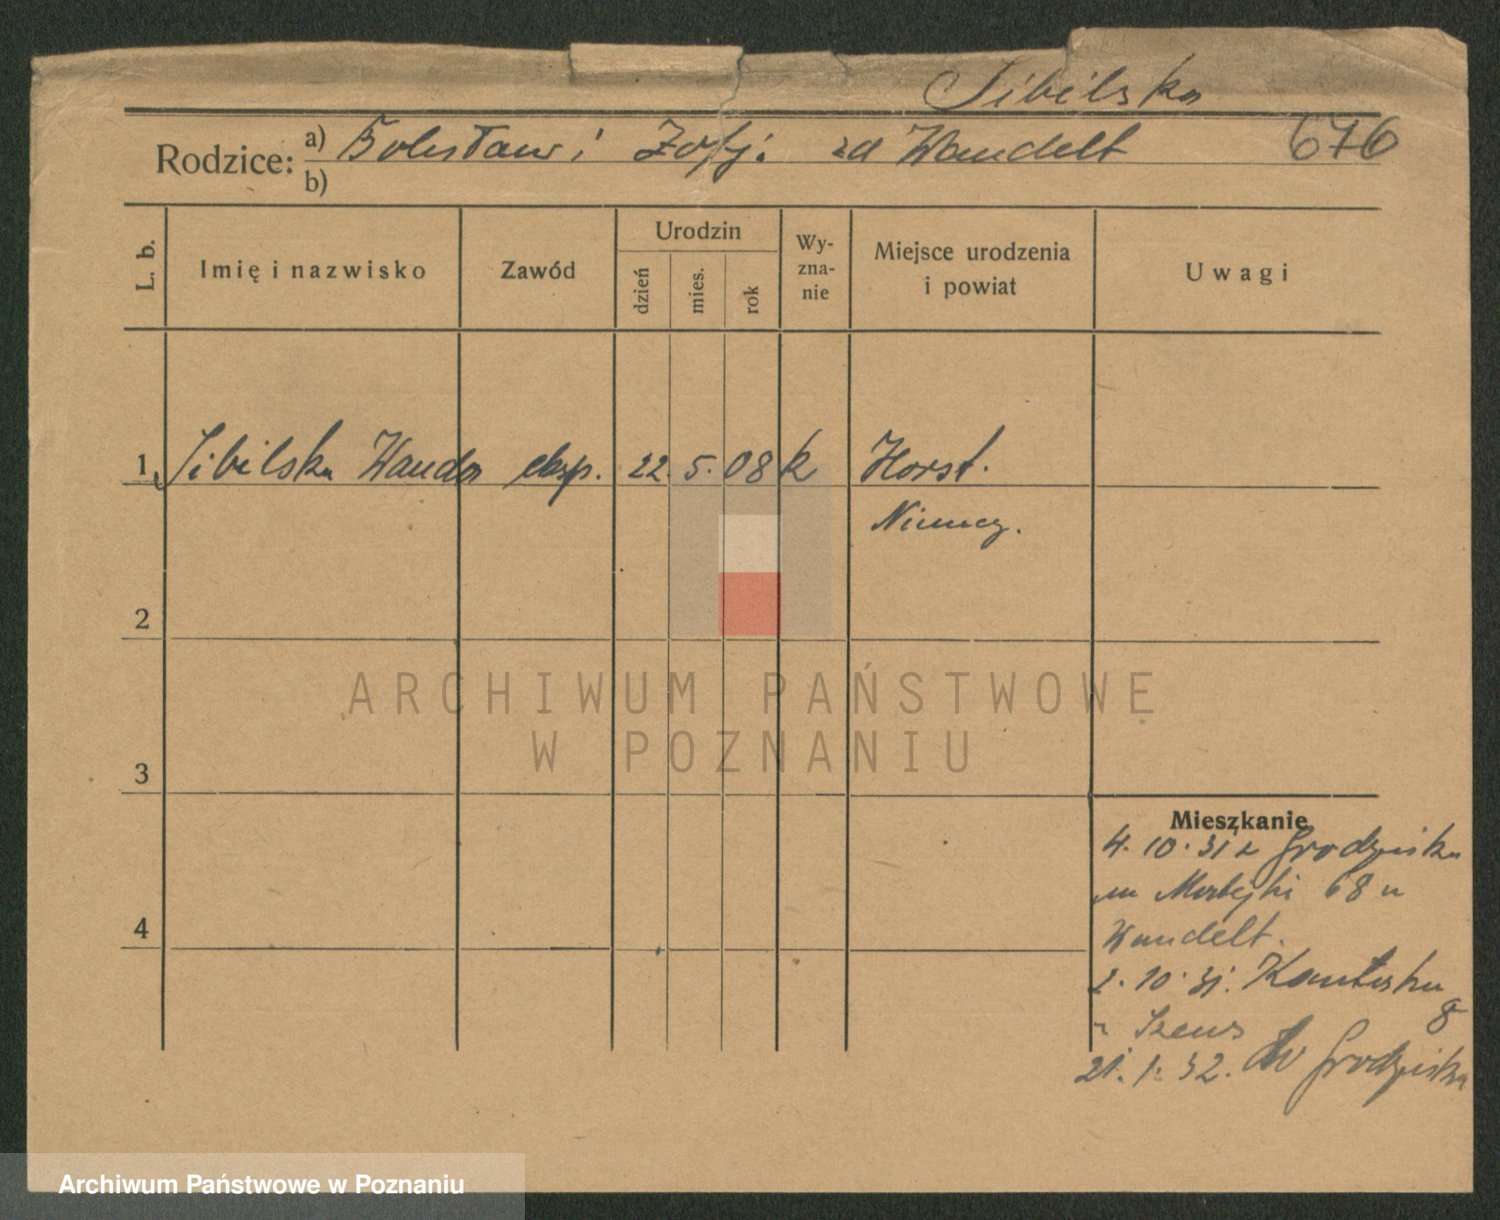 Sibilska
Rodzice: a) Bolesław i Zofj. zd Wandelt 676
b)
L. b. Imię i nazwisko Zawód Urodzin dzień mies. rok Wy-zna-nie Miejsce urodzenia i powiat Uwagi
1. Sibilska Wanda eksp. 22. 5. 08 k Horst.
Niemcy.
2
ARCHIWUM PAŃSTWOWE
W POZNANIU
3
Mieszkanie
4. 10. 31 z Grodziska
68 u
4
Wandelt.
10. 31. 8
21. 1. 32. do Grodziska
Archiwum Państwowe w Poznaniu